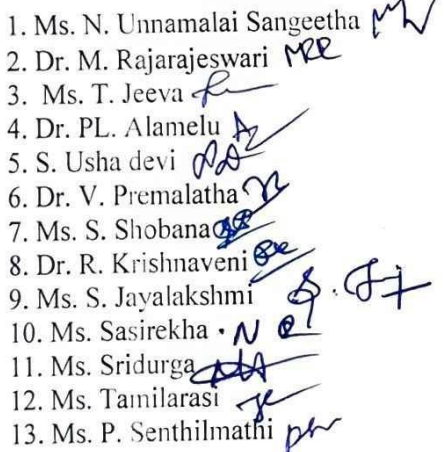 1. Ms. N. Unnamalai Sangeetha
2. Dr. M. Rajarajeswari MRR
3. Ms. T. Jeeva
4. Dr. PL. Alamelu
5. S. Usha devi
6. Dr. V. Premalatha
7. Ms. S. Shobana
8. Dr. R. Krishnaveni
9. Ms. S. Jayalakshmi
10. Ms. Sasirekha
11. Ms. Sridurga
12. Ms. Tamilarasi
13. Ms. P. Senthilmathi